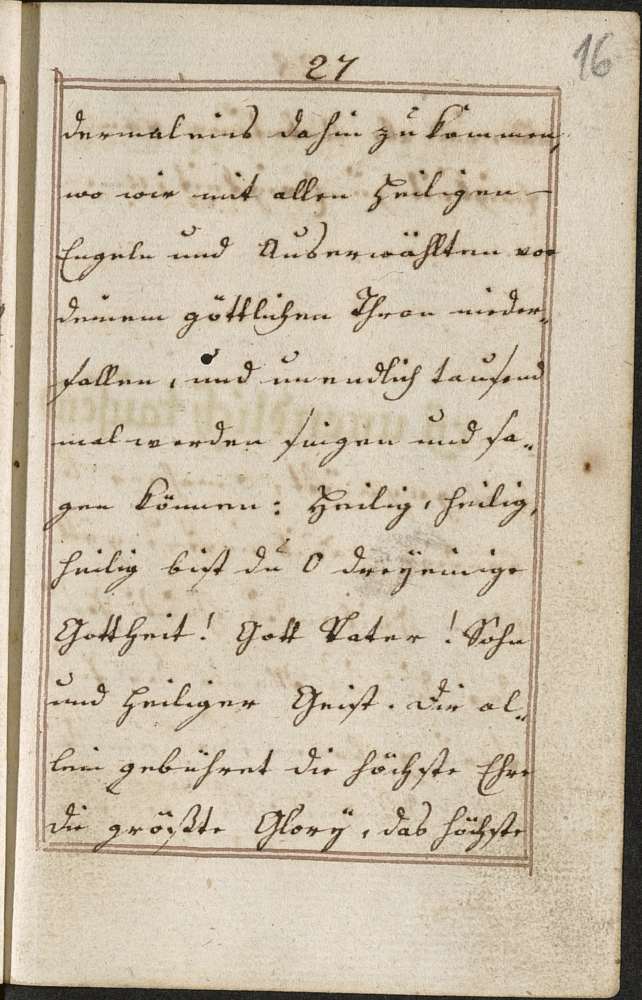 27
16
dermaleins dahin zu kommen,
wo wir mit allen Heiligen
Engeln und Auserwählten vor
deinem göttlichen Thron nieder„
fallen, und unendlich tausend
mal werden singen und sa„
gen können: Heilig, heilig,
heilig bist du O dreyeinige
Gottheit! Gott Vater! Sohn
und heiliger Geist. Dir al„
lein gebühret die höchste Ehre
die größte Glory, das höchste